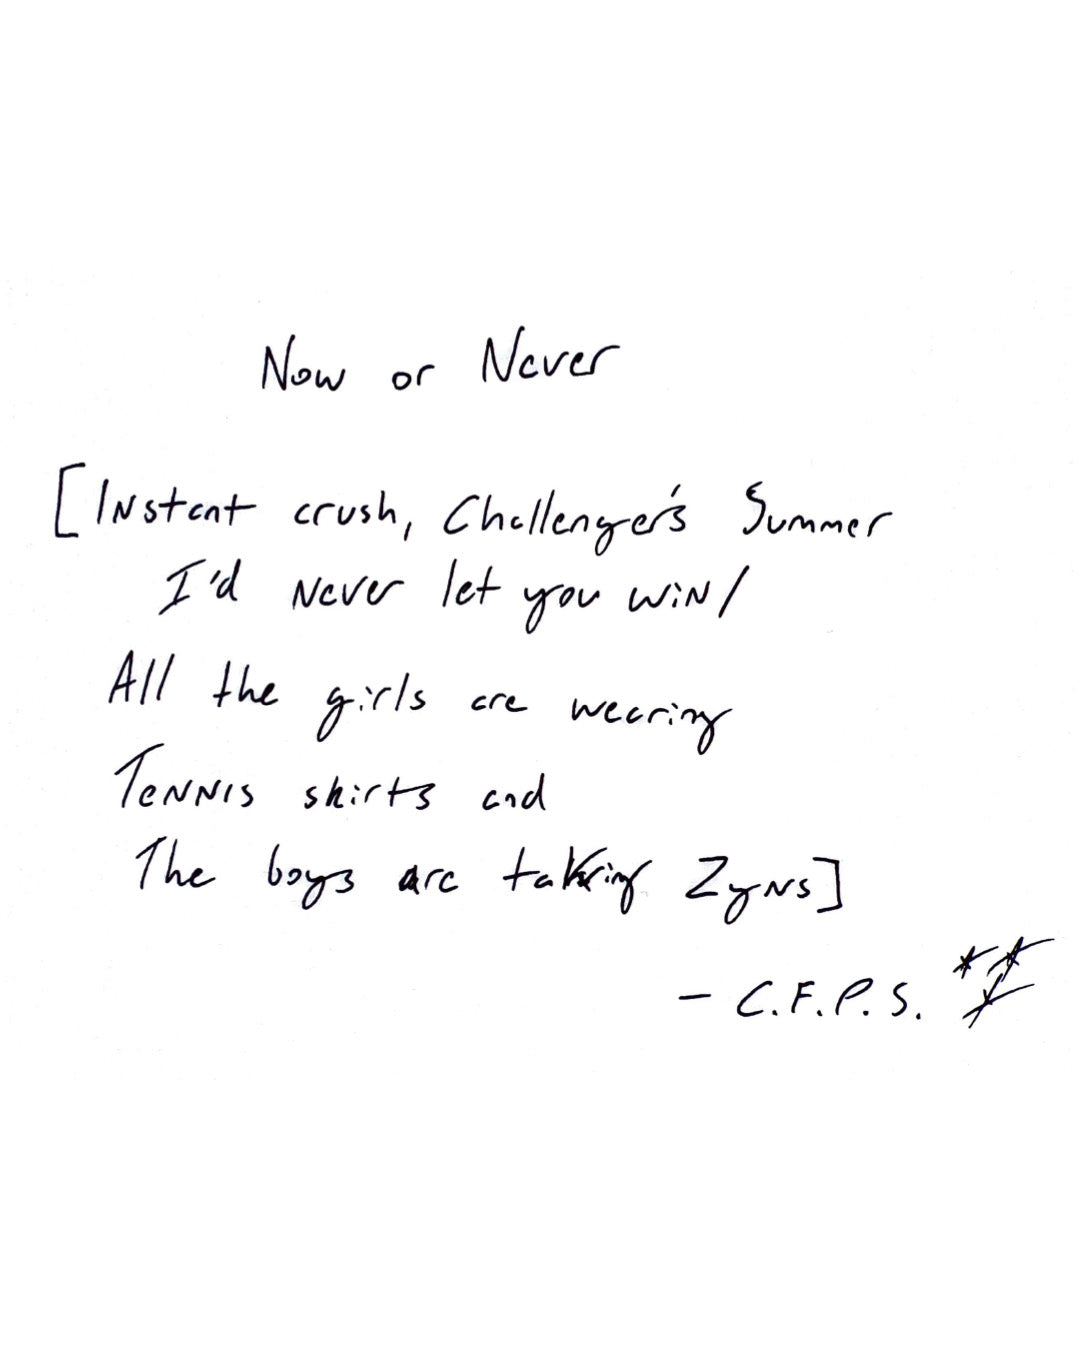 Now or Never
[Instant crush, Challenger's Summer
I'd never let you win/
All the girls are wearing
Tennis skirts and
The boys are taking Zyns]
- C.F.P.S.